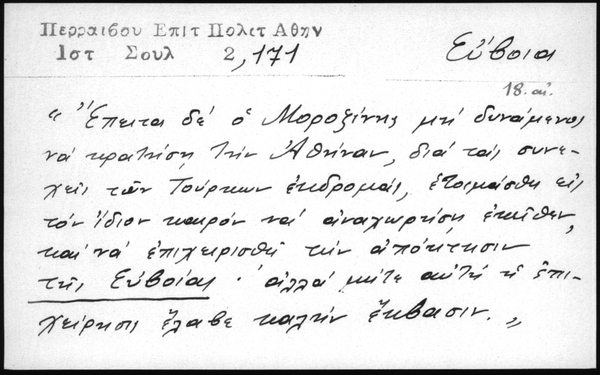 Περραιβου Επιτ Πολιτ Αθην
1στ Σουλ 2,171
Εὔβοια
18. αἰ.
"Ἔπειτα δέ ὁ Μοροζίνης μή δυνάμενος
νά κρατήσῃ τήν Ἀθῆναν, διά τάς συνε-
χεῖς τῶν Τούρκων ἐκδρομάς, ἑτοιμάσθη εἰς
τόν ἴδιον καιρόν νά ἀναχωρήσῃ ἐκεῖθεν,
καί νά ἐπιχειρισθῇ τήν ἀπόκτησιν
τῆς Εὐβοίας · ἀλλά μήτε αὐτή ἡ ἐπι-
χείρησις ἔλαβε καλήν ἔκβασιν."